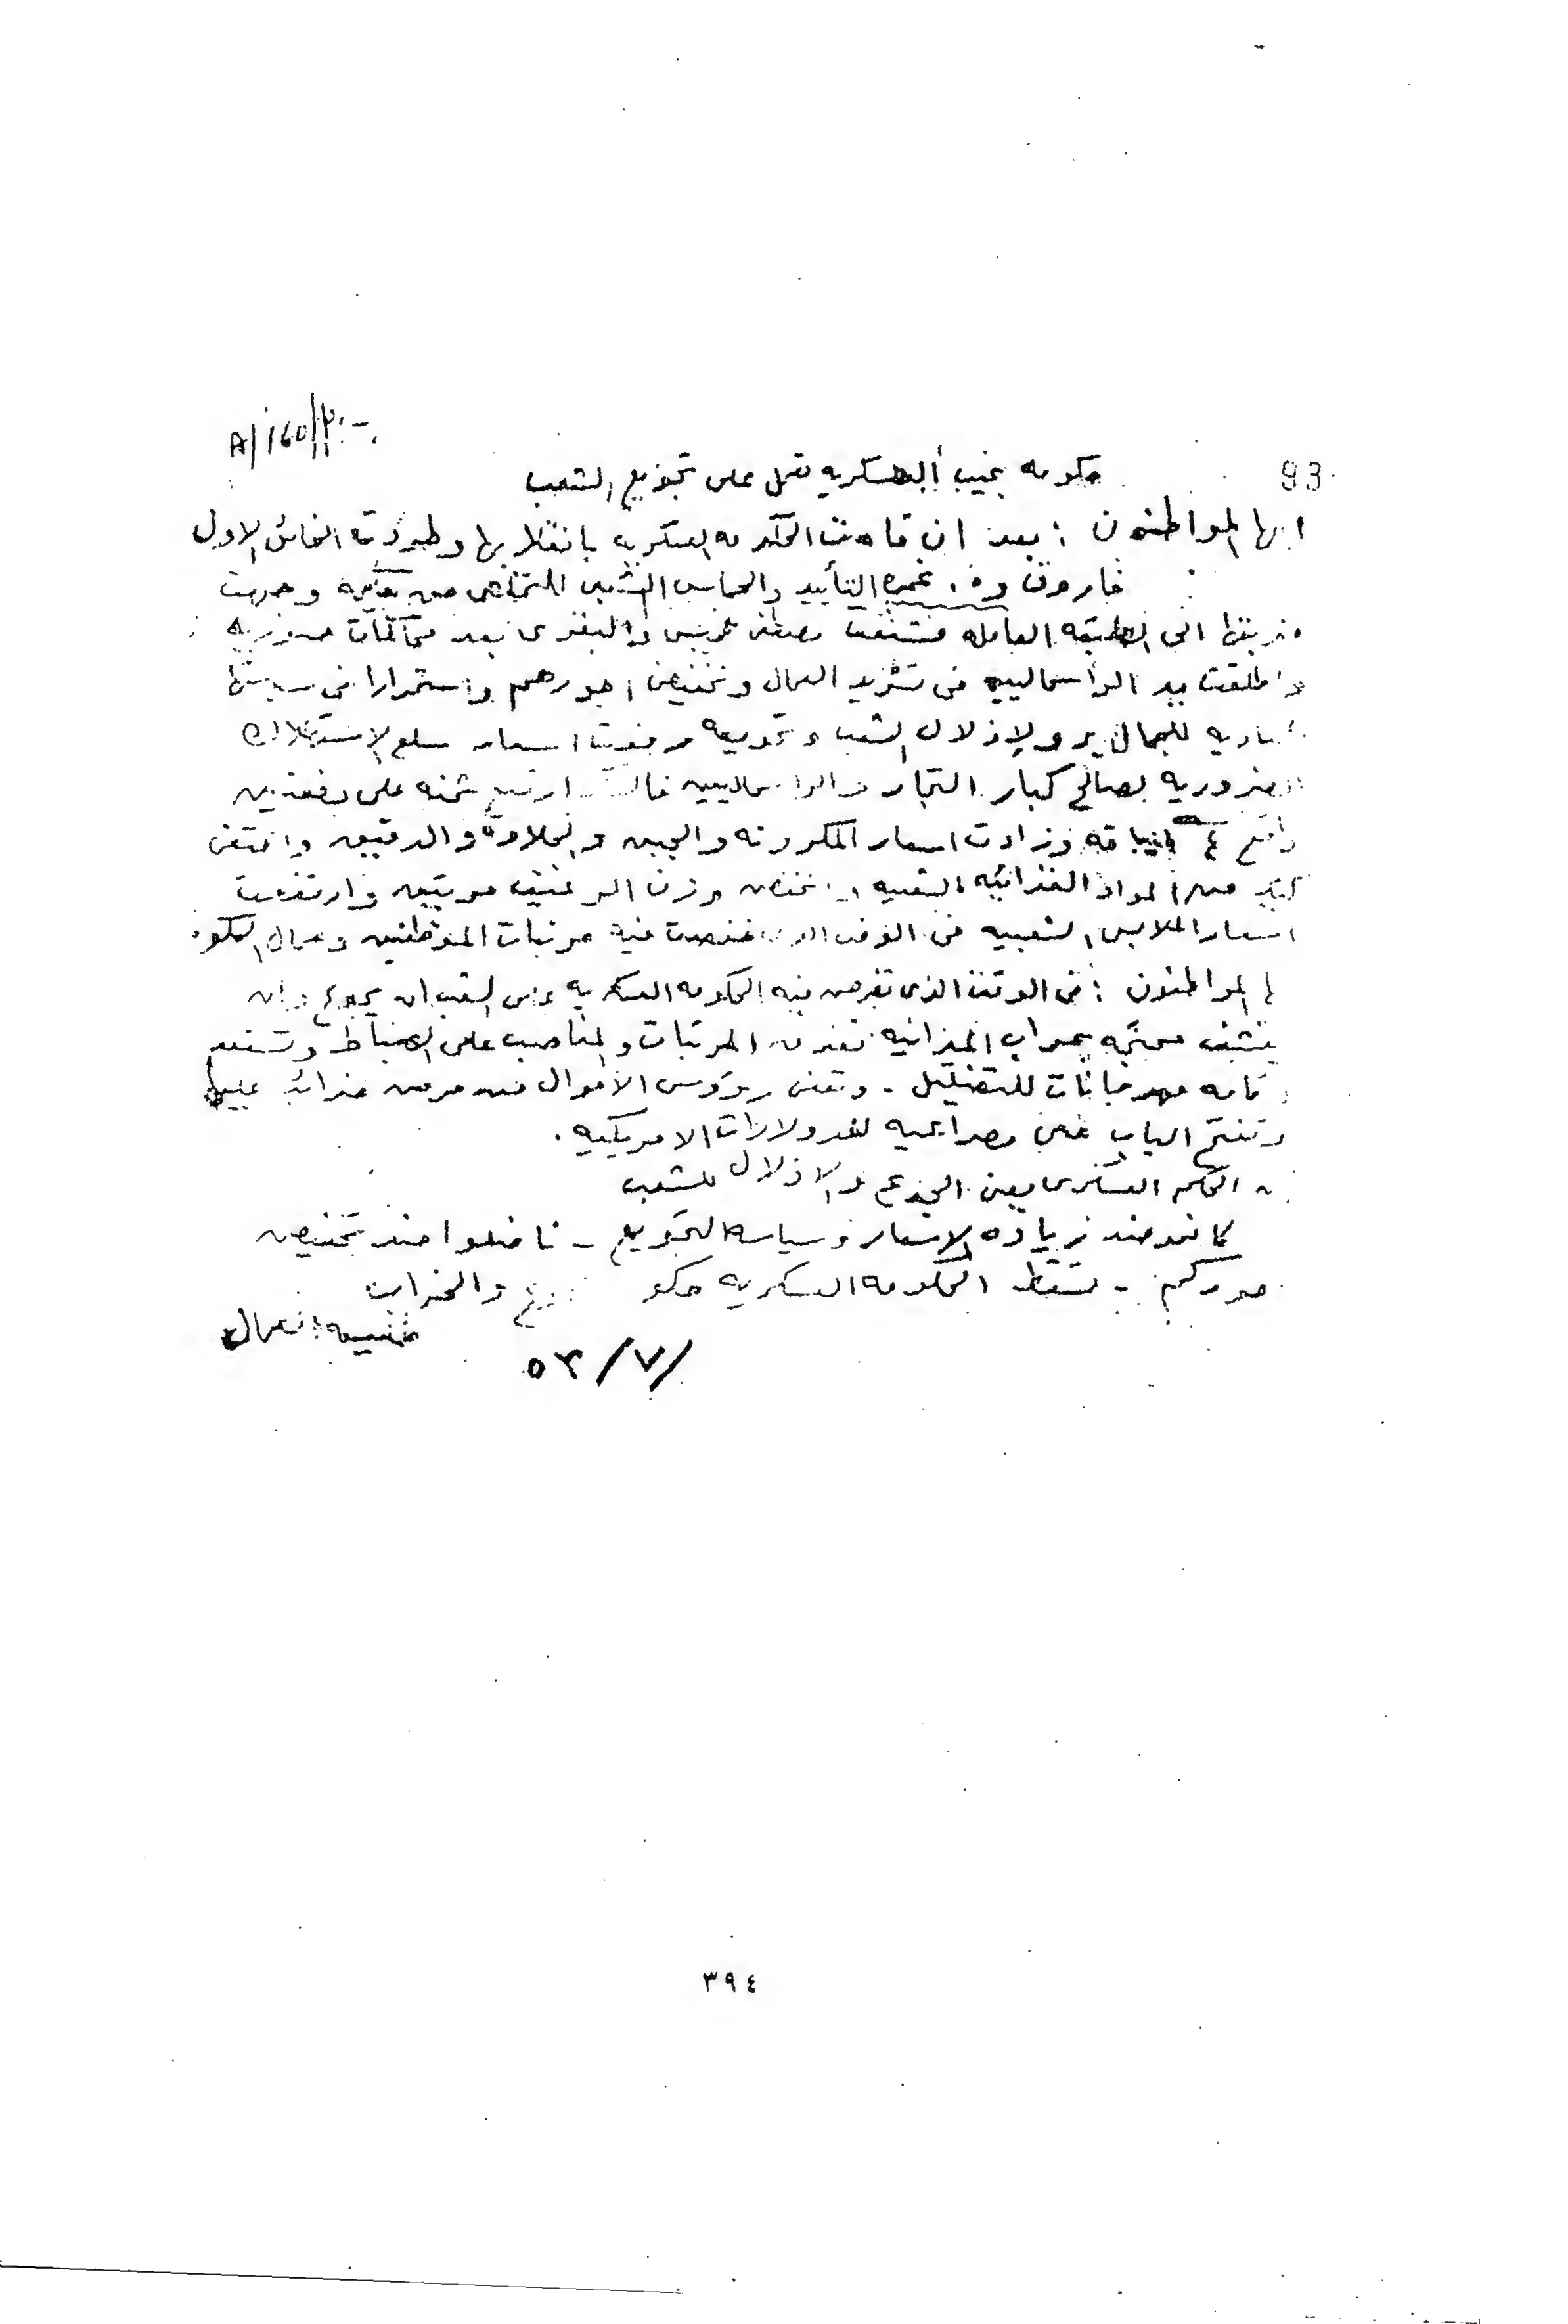 A/160/
93
حكومه نجيب العسكريه تعمل على تجويع الشعب
ايها المواطنون : بعد ان قامت الحكومه العسكريه بانقلابها وطردت الخائن الاول
فاروق وه . غمره التأييد والحماس الشعبى للتخلص من وجهت
ضربتها الى الطبقه العامله فشنقت مصطفى خميس والبقرى بعد محاكمات صوريه
واطلقت يد الرأسماليين فى تشريد العمال وتخفيض اجورهم واستمرارا فى سياستها
للجماهير ولإذلال الشعب وتجويعه رفعت اسعار سلع الاستهلاك
الضروريه لصالح كبار التجار والرأسماليين ارتفع ثمنه على دفعتين
وزادت اسعار المكرونه والجبن والحلاوة والدقيق واختفى
كثير من المواد الغذائيه الشعبيه وزن الرغيف مرتين وارتفعت
اسعار الملابس الشعبيه فى الوقت الذى خفضت فيه مرتبات الموظفين وعمال الحكومه
ايها المواطنون : فى الوقت الذى تفرض فيه الحكومه العسكريه على الشعب ان يجوع وان
يتقشف بحجه الميزانيه تغدق المرتبات والمناصب على الضباط
اقامه مهرجانات للتضليل - وتعفى رؤوس الاموال من فرض ضرائب عليها
وتفتح الباب على مصراعيه للدولارات الامريكيه .
ان الحكم العسكرى يعنى الجوع والاذلال للشعب
كافحوا ضد زياده الاسعار وسياسه التجويع - ناضلوا ضد تخفيض
اجوركم - لتسقط الحكومه العسكريه والخراب
٥٣/٧/
٣٩٤